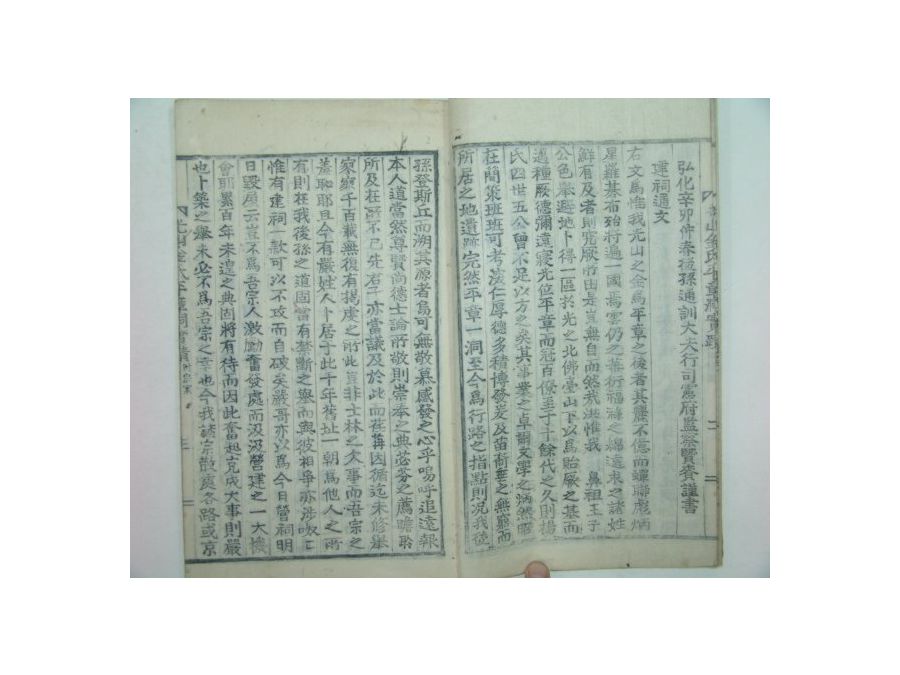 弘化辛卯仲春後孫通訓大夫行司憲府監察賢賚謹書
建祠通文
右文爲惟我光山之金爲平章之後者其麗不億而蟬聯彪炳
星羅碁布殆將遍一國焉雲仍之蕃衍福祿之綿遠求之諸姓
鮮有及者則究厥所由是豈無自而然哉洪惟我 鼻祖王子
公色擧避地卜得一區於光之北佛臺山下以爲貽厥之基而
邁種厥德彌遠寢光位平章而冠百僚至于十餘代之久則楊
氏四世五公曾不足以方之矣其事業之卓爾文學之炳然昭
在簡策班班可考茂仁厚德多積博發爰及苗裔垂之無窮而
所居之地遺跡宛然平章一洞至今爲行路之指點則况我後
孫登斯丘而溯其源者烏可無敬慕感發之心乎嗚呼追遠報
本人道當然尊賢尚德士論所敬則崇奉之典苾芬之薦瞻聆
所及在所不已先君子亦當議及於此而荏苒因循迄未修擧
寂寞千百載無復有揭虔之所此豈非士林之欠事而吾宗之
羞恥耶且今有嚴姓人卜居于此千年舊址一朝爲他人之所
有則在我後孫之道固當有禁斷之擧而與彼相爭亦涉
惟有建祠一款可以不攻而自破矣嚴哥亦以爲今日營祠明
日毀屋云豈不爲吾宗人激勵奮發處而汲汲營建之一大機
會耶累百年未遑之典固將有待而因此奮起克成大事則嚴
也卜築之擧未必不爲吾宗之幸也今我諸宗散處各路或京